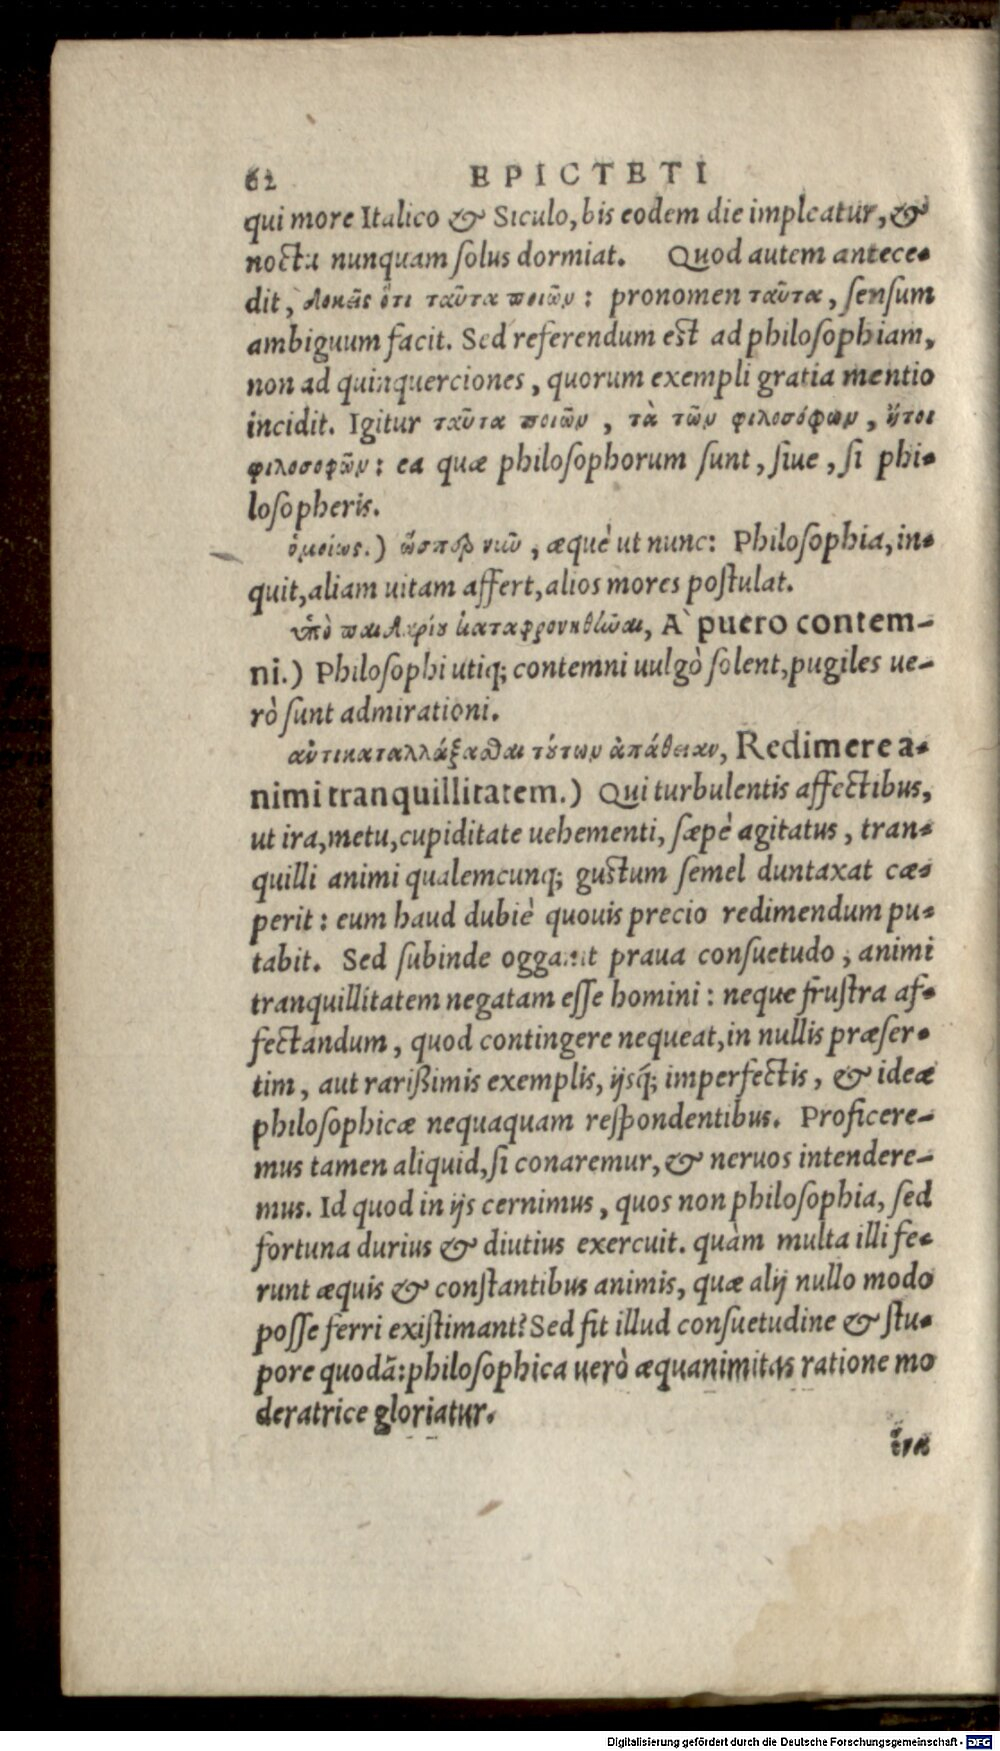 62 EPICTETI
qui more Italico & Siculo, bis eodem die impleatur, &
noctu nunquam ſolus dormiat. Quod autem antece-
dit, δοκεῖς ὅτι ταῦτα ποιῶν : pronomen ταῦτα, ſenſum
ambiguum facit. Sed referendum eſt ad philoſophiam,
non ad quinquerciones, quorum exempli gratia mentio
incidit. Igitur ταῦτα ποιῶν , τὰ τῶν φιλοσόφων , ἤτοι
φιλοσοφῶν : ea quæ philoſophorum ſunt, ſiue, ſi phi-
loſopheris.
ὁμοίως.) ὥσπερ νῦν , æquè ut nunc: Philoſophia, in-
quit, aliam uitam affert, alios mores poſtulat.
ὑπὸ παιδαρίου καταφρονηθῆναι, A` puero contem-
ni.) Philoſophi utiq; contemni uulgò ſolent, pugiles ue-
rò ſunt admirationi.
ἀντικαταλλάξασθαι τούτων ἀπάθειαν, Redimere a-
nimi tranquillitatem.) Qui turbulentis affectibus,
ut ira, metu, cupiditate uehementi, ſæpè agitatus, tran-
quilli animi qualemcunq; guſtum ſemel duntaxat cæ-
perit : eum haud dubiè quouis precio redimendum pu-
tabit. Sed ſubinde oggannit praua conſuetudo, animi
tranquillitatem negatam eſſe homini : neque fruſtra af-
fectandum, quod contingere nequeat, in nullis præſer-
tim, aut rarißimis exemplis, ijsq́; imperfectis, & ideæ
philoſophicæ nequaquam reſpondentibus. Proficere-
mus tamen aliquid, ſi conaremur, & neruos intendere-
mus. Id quod in ijs cernimus, quos non philoſophia, ſed
fortuna durius & diutius exercuit. quàm multa illi fe-
runt æquis & conſtantibus animis, quæ alij nullo modo
poſſe ferri exiſtimant? Sed fit illud conſuetudine & ſtu-
pore quodã: philoſophica uerò æquanimitas ratione mo
deratrice gloriatur.
ἵνα
Digitalisierung gefördert durch die Deutsche Forschungsgemeinschaft - DFG